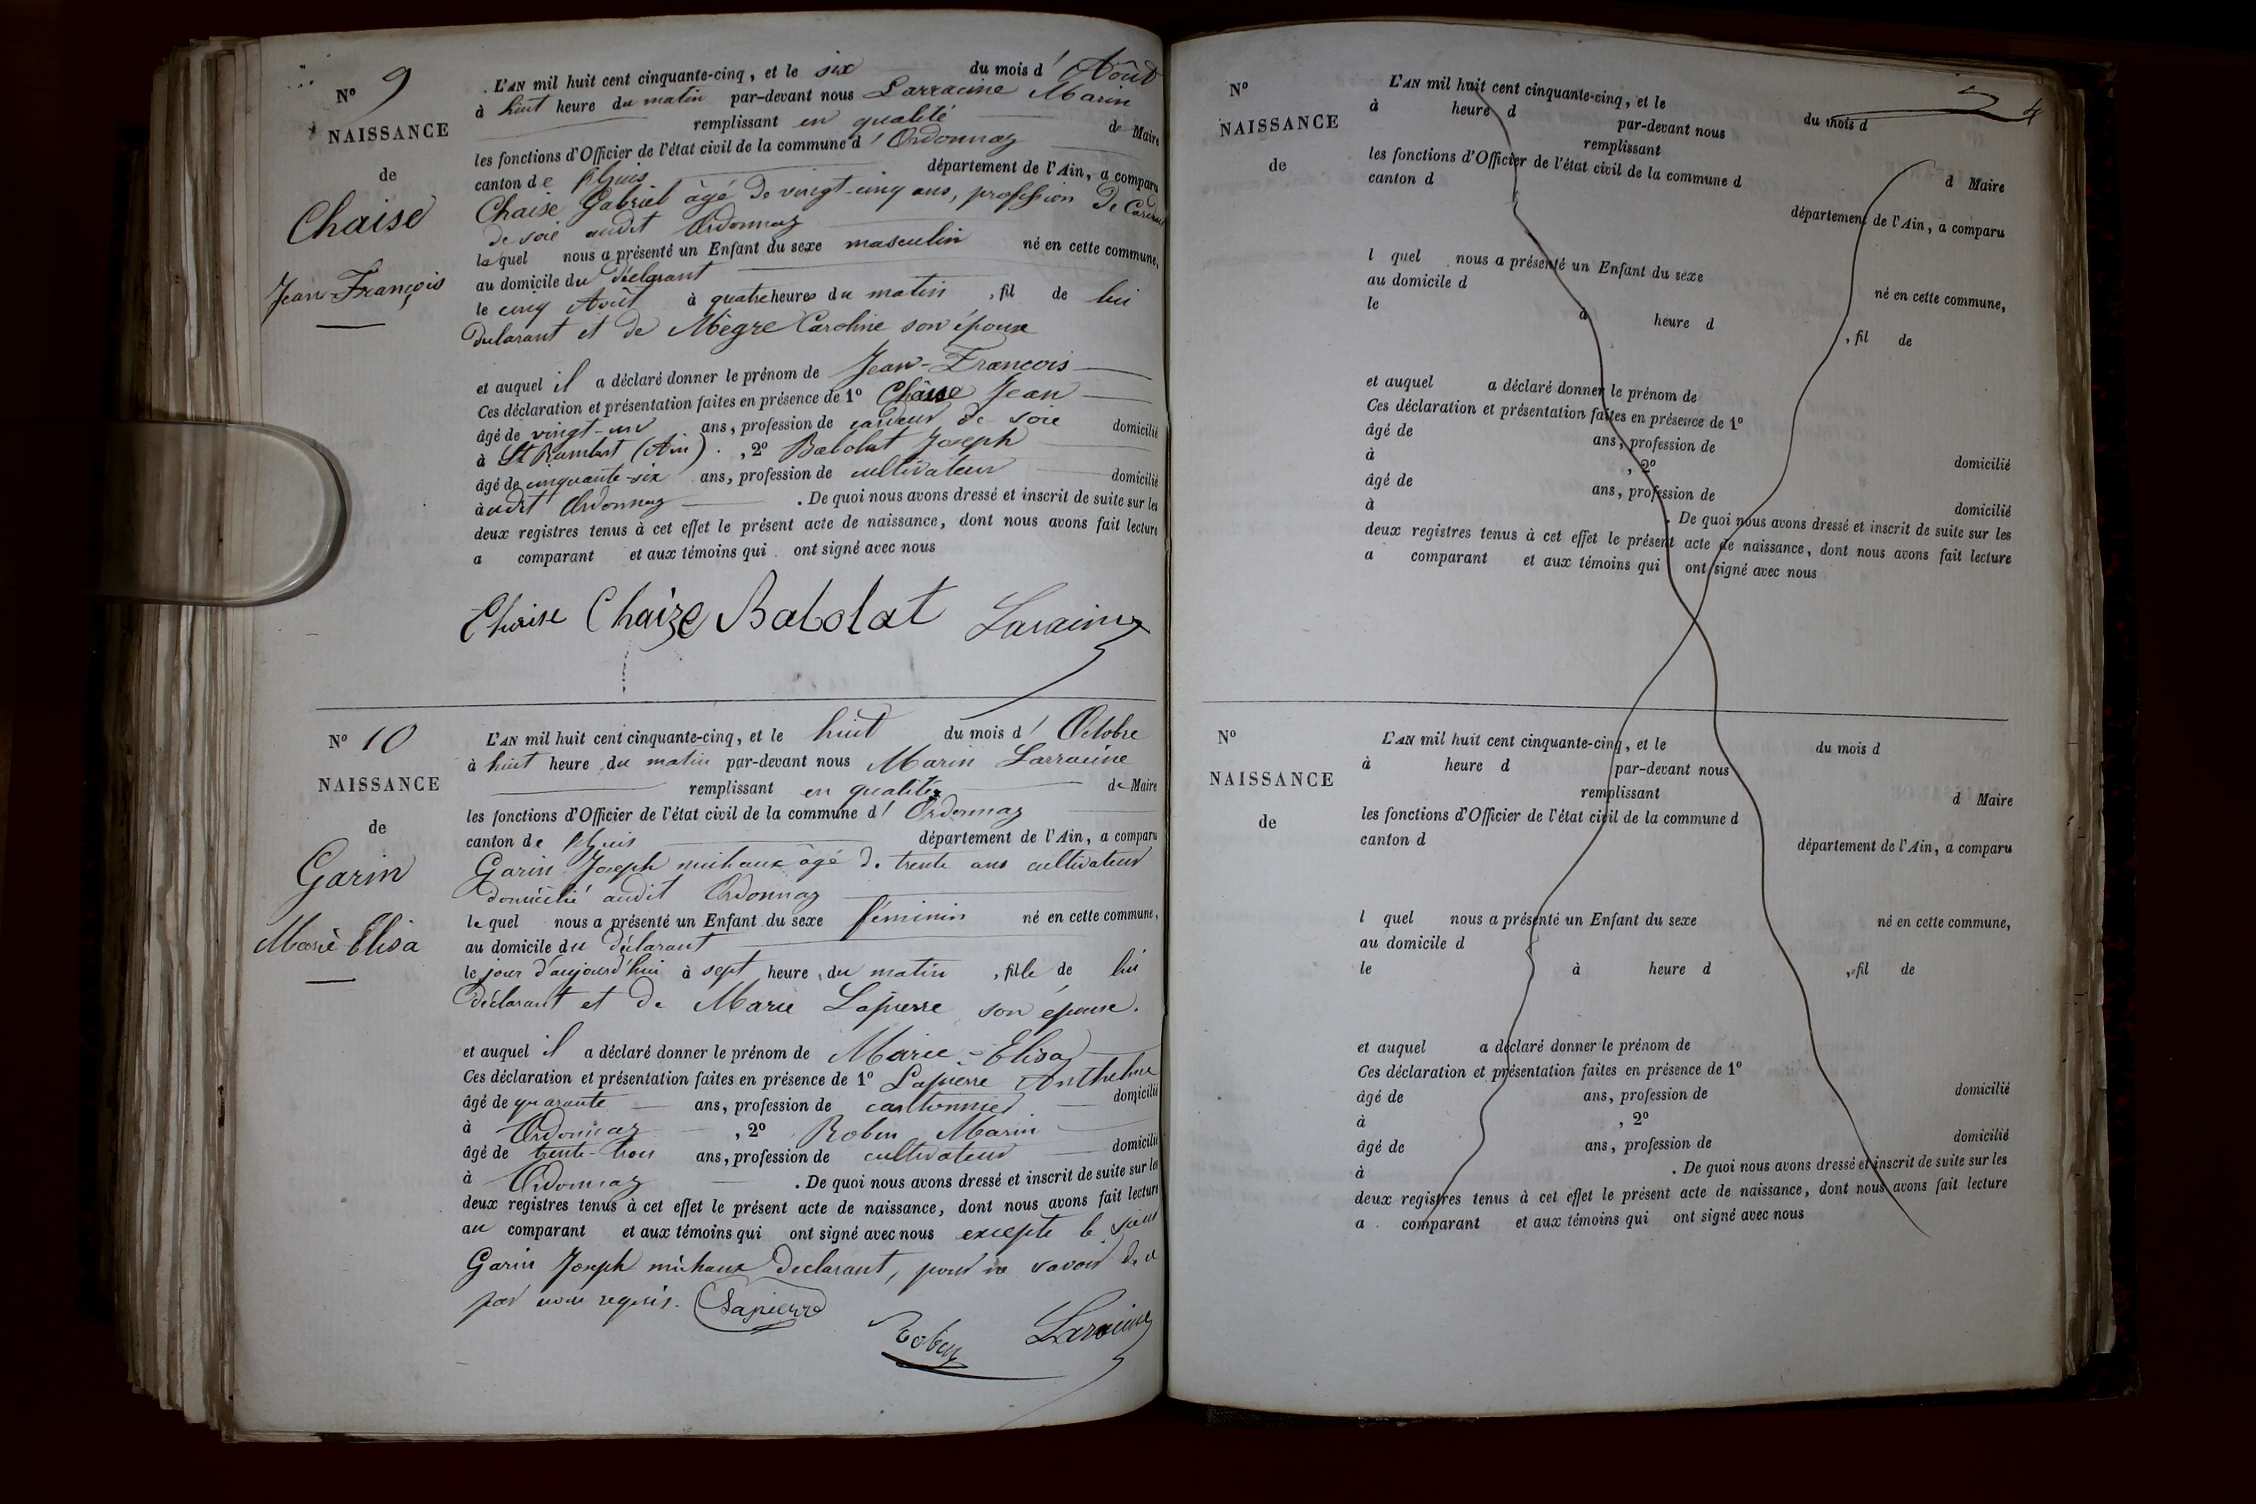 N° 9
NAISSANCE
de
Chaise
Jean-François
L'AN mil huit cent cinquante-cinq, et le six du mois d'Août
à huit heure du matin par-devant nous Larracine Marin
remplissant en qualité de Maire
les fonctions d'Officier de l'état civil de la commune d'Ordonnaz
canton de lhuis département de l'Ain, a comparu
Chaise Gabriel âgé de vingt-cinq ans, profession de Cardeur
de soie audit Ordonnaz
lequel nous a présenté un Enfant du sexe masculin né en cette commune,
au domicile du déclarant
le cinq Août à quatre heures du matin, fil de lui
déclarant et de Mègre Caroline son épouse
et auquel il a déclaré donner le prénom de Jean-François
Ces déclaration et présentation faites en présence de 1° Chaise Jean
âgé de vingt-un ans, profession de cardeur de soie domicilié
à St Rambert (Ain). , 2° Babolat Joseph
âgé de cinquante-six ans, profession de cultivateur domicilié
audit Ordonnaz . De quoi nous avons dressé et inscrit de suite sur les
deux registres tenus à cet effet le présent acte de naissance, dont nous avons fait lecture
a comparant et aux témoins qui ont signé avec nous
Chaise Chaize Babolat Laracine
N° 10
NAISSANCE
de
Garin
Marie Elisa
L'AN mil huit cent cinquante-cinq, et le huit du mois d'Octobre
à huit heure du matin par-devant nous Marin Larracine
remplissant en qualité de Maire
les fonctions d'Officier de l'état civil de la commune d'Ordonnaz
canton de lhuis département de l'Ain, a comparu
Garin Joseph michaux âgé de trente ans cultivateur
domicilié audit Ordonnaz
le quel nous a présenté un Enfant du sexe féminin né en cette commune,
au domicile du déclarant
le jour d'aujourd'hui à sept heure du matin, fille de lui
déclarant et de Marie Lapierre son épouse.
et auquel il a déclaré donner le prénom de Marie-Elisa
Ces déclaration et présentation faites en présence de 1° Lapierre Anthelme
âgé de quarante ans, profession de domicilié
à Ordonnaz , 2° Robin Marin
âgé de trente-trois ans, profession de cultivateur domicilié
à Ordonnaz . De quoi nous avons dressé et inscrit de suite sur les
deux registres tenus à cet effet le présent acte de naissance, dont nous avons fait lecture
au comparant et aux témoins qui ont signé avec nous excepté le
Garin Joseph michaux déclarant, pour ne savoir de ce
par nous requis. Lapierre
Robin Laracine
N°
NAISSANCE
de
L'AN mil huit cent cinquante-cinq, et le du mois d
à heure d par-devant nous
remplissant d Maire
les fonctions d'Officier de l'état civil de la commune d
canton d département de l'Ain, a comparu
l quel nous a présenté un Enfant du sexe né en cette commune,
au domicile d
le à heure d , fil de
et auquel a déclaré donner le prénom de
Ces déclaration et présentation faites en présence de 1°
âgé de ans, profession de domicilié
à , 2°
âgé de ans, profession de domicilié
à . De quoi nous avons dressé et inscrit de suite sur les
deux registres tenus à cet effet le présent acte de naissance, dont nous avons fait lecture
a comparant et aux témoins qui ont signé avec nous
N°
NAISSANCE
de
L'AN mil huit cent cinquante-cinq, et le du mois d
à heure d par-devant nous
remplissant d Maire
les fonctions d'Officier de l'état civil de la commune d
canton d département de l'Ain, a comparu
l quel nous a présenté un Enfant du sexe né en cette commune,
au domicile d
le à heure d , fil de
et auquel a déclaré donner le prénom de
Ces déclaration et présentation faites en présence de 1°
âgé de ans, profession de domicilié
à , 2°
âgé de ans, profession de domicilié
à . De quoi nous avons dressé et inscrit de suite sur les
deux registres tenus à cet effet le présent acte de naissance, dont nous avons fait lecture
a comparant et aux témoins qui ont signé avec nous